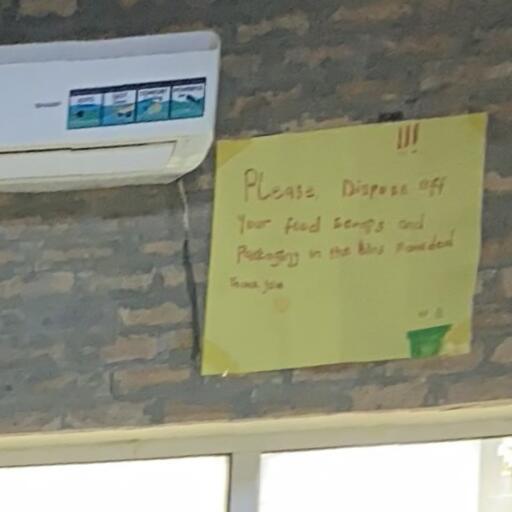 !!!
Please, Dispose off
Your food scraps and
Packaging in the bins Provided
Thank you